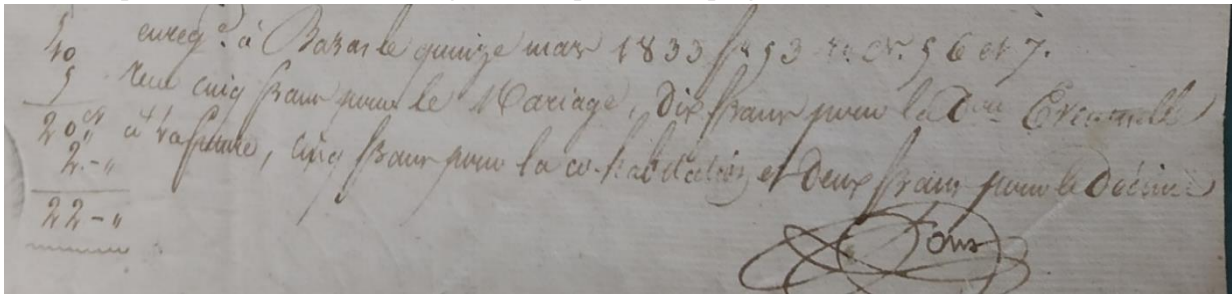 10 enreg.é à Bazas le quinze mars 1833 f.º 93 r.º c.es 5 6 et 7.
5 reçu cinq francs pour le Mariage, dix francs pour la Don Eventuelle
20 " à l'épouse, cinq francs pour la cohabitation et deux francs pour le décime
2 - "
22 - "
Fons